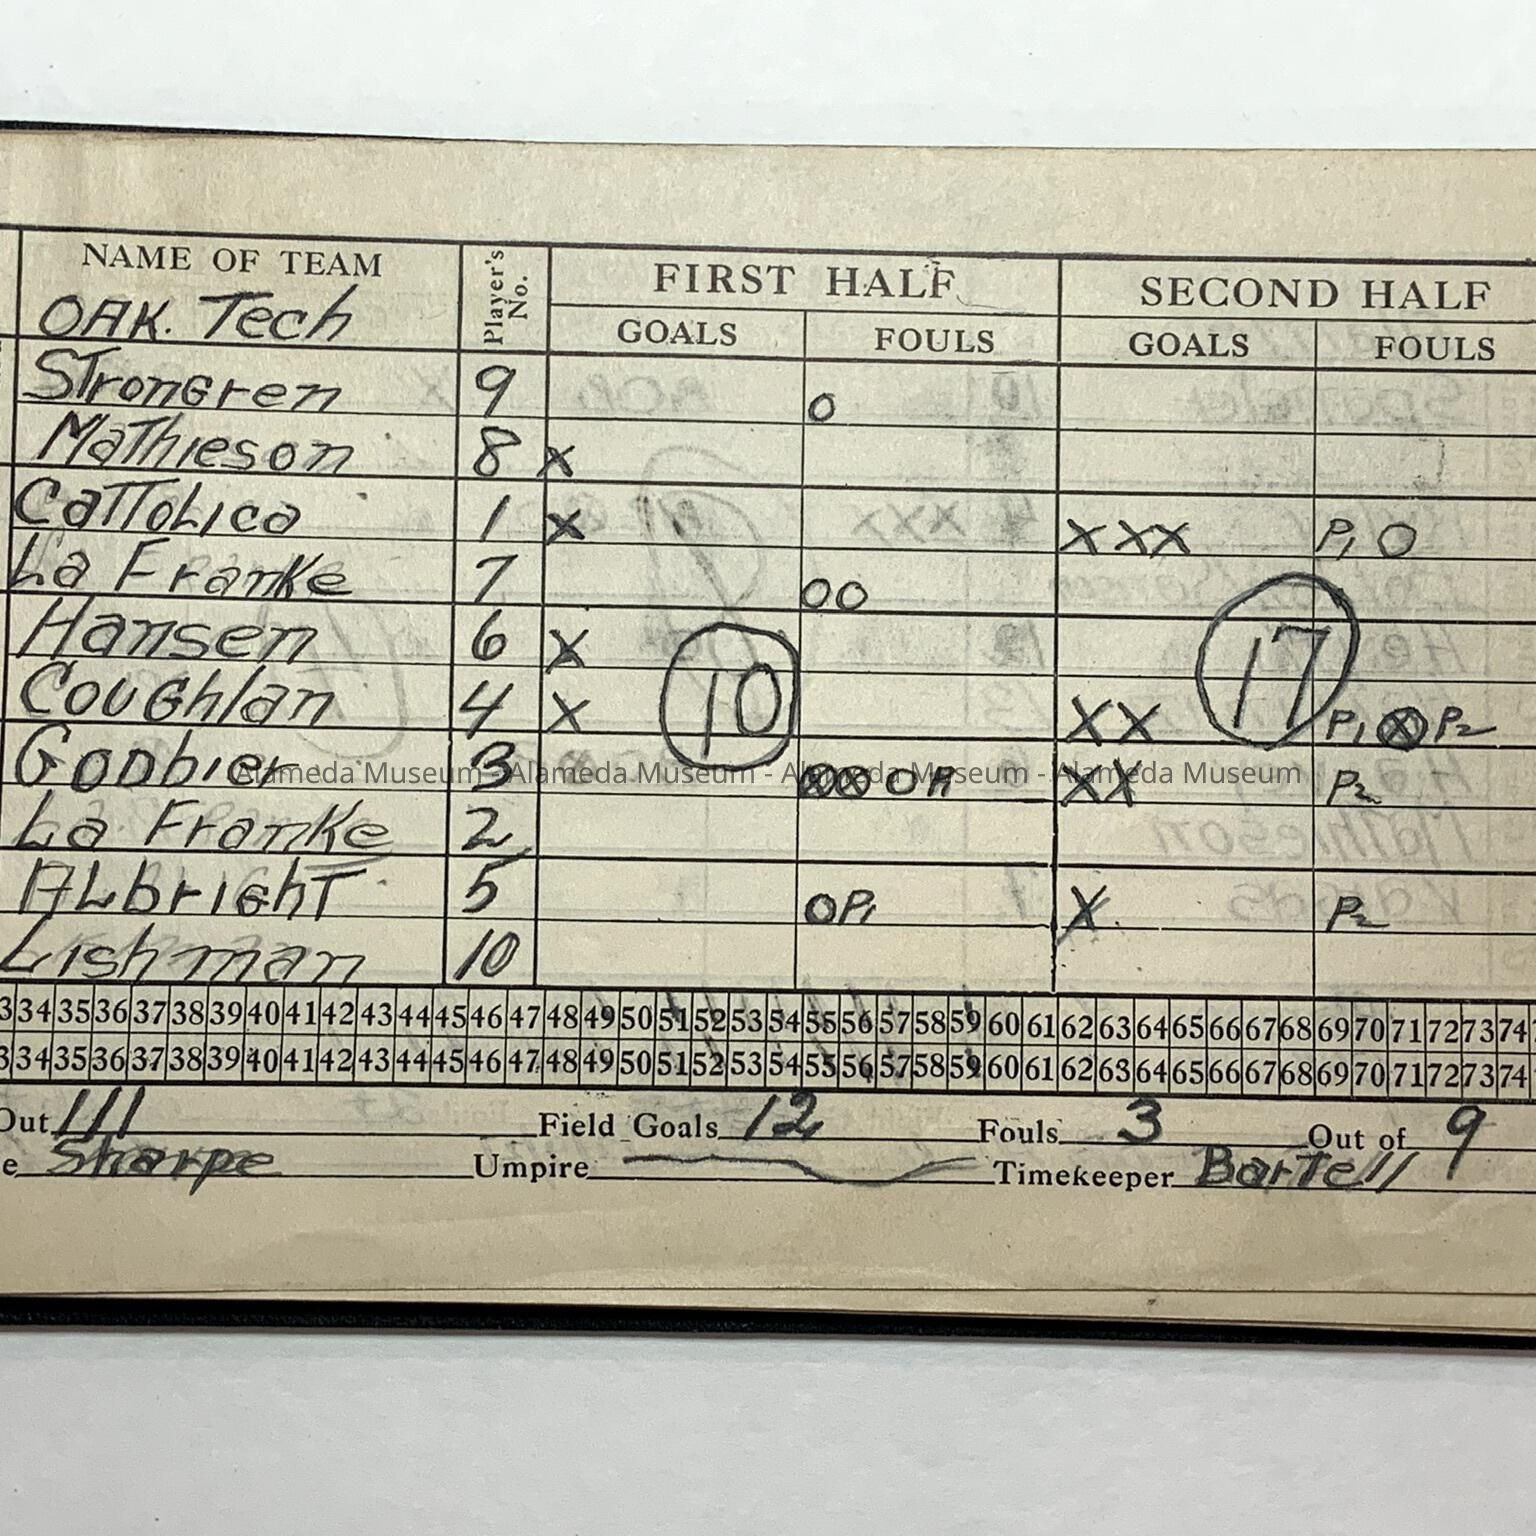 NAME OF TEAM Player's No. FIRST HALF SECOND HALF
OAK. Tech GOALS FOULS GOALS FOULS
Strongren 9 O
Mathieson 8 X
Cattolica 1 X XXX P1 O
La Franke 7 OO
Hansen 6 X
Coughlan 4 X 10 XX 17 P1 ⊗ P2
3 ⊗⊗ O P1 XX P2
Alameda Museum - Alameda Museum - Alameda Museum - Alameda Museum
La Franke 2
Albright 5 O P1 X P2
Lishman 10
3 34 35 36 37 38 39 40 41 42 43 44 45 46 47 48 49 50 51 52 53 54 55 56 57 58 59 60 61 62 63 64 65 66 67 68 69 70 71 72 73 74
3 34 35 36 37 38 39 40 41 42 43 44 45 46 47 48 49 50 51 52 53 54 55 56 57 58 59 60 61 62 63 64 65 66 67 68 69 70 71 72 73 74
Out III Field Goals 12 Fouls 3 Out of 9
e Sharpe Umpire Timekeeper Bartell